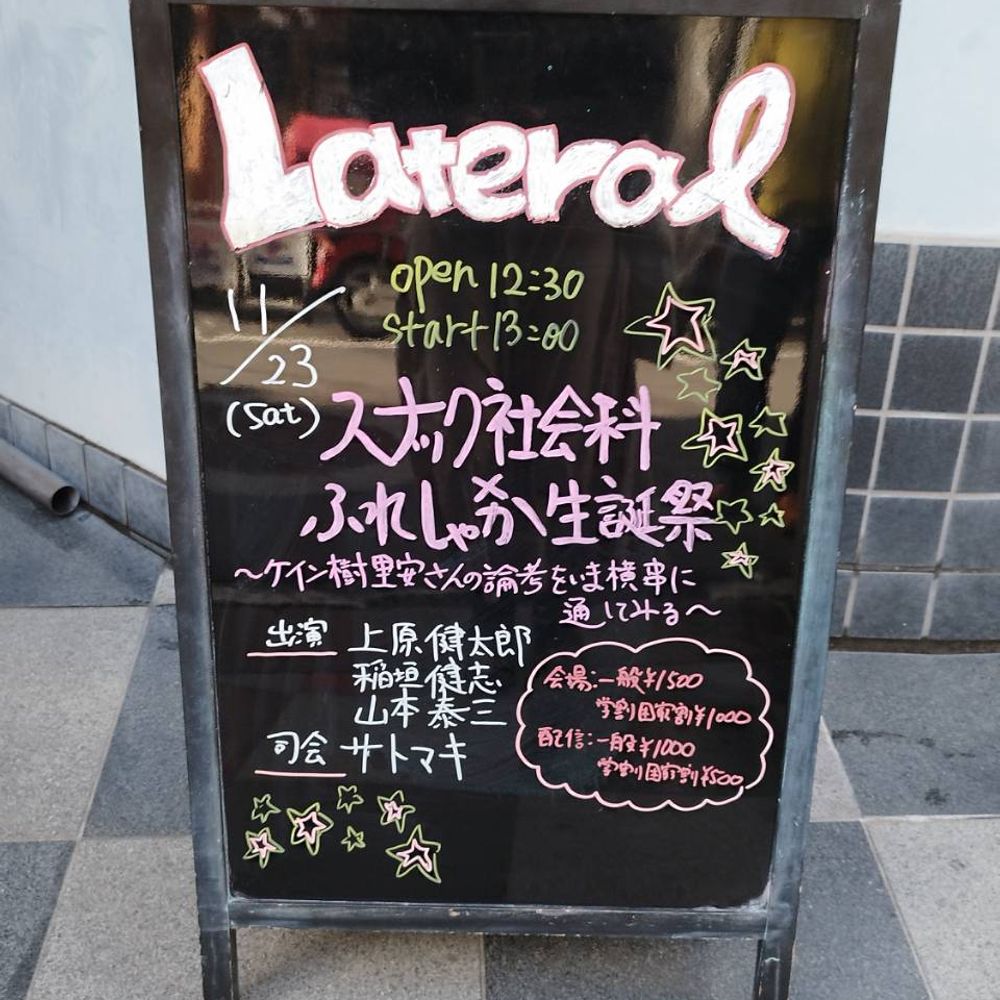 Lateral
open 12:30
start 13:00
11/23
(Sat)
スナック社会科
ふれしゃか生誕祭
～ケイン樹里安さんの論考をいま横串に
通してみる～
出演 上原健太郎
稲垣健志
山本泰三
司会 サトマキ
会場:一般¥1500
学割国家割¥1000
配信:一般¥1000
学割国家割¥500